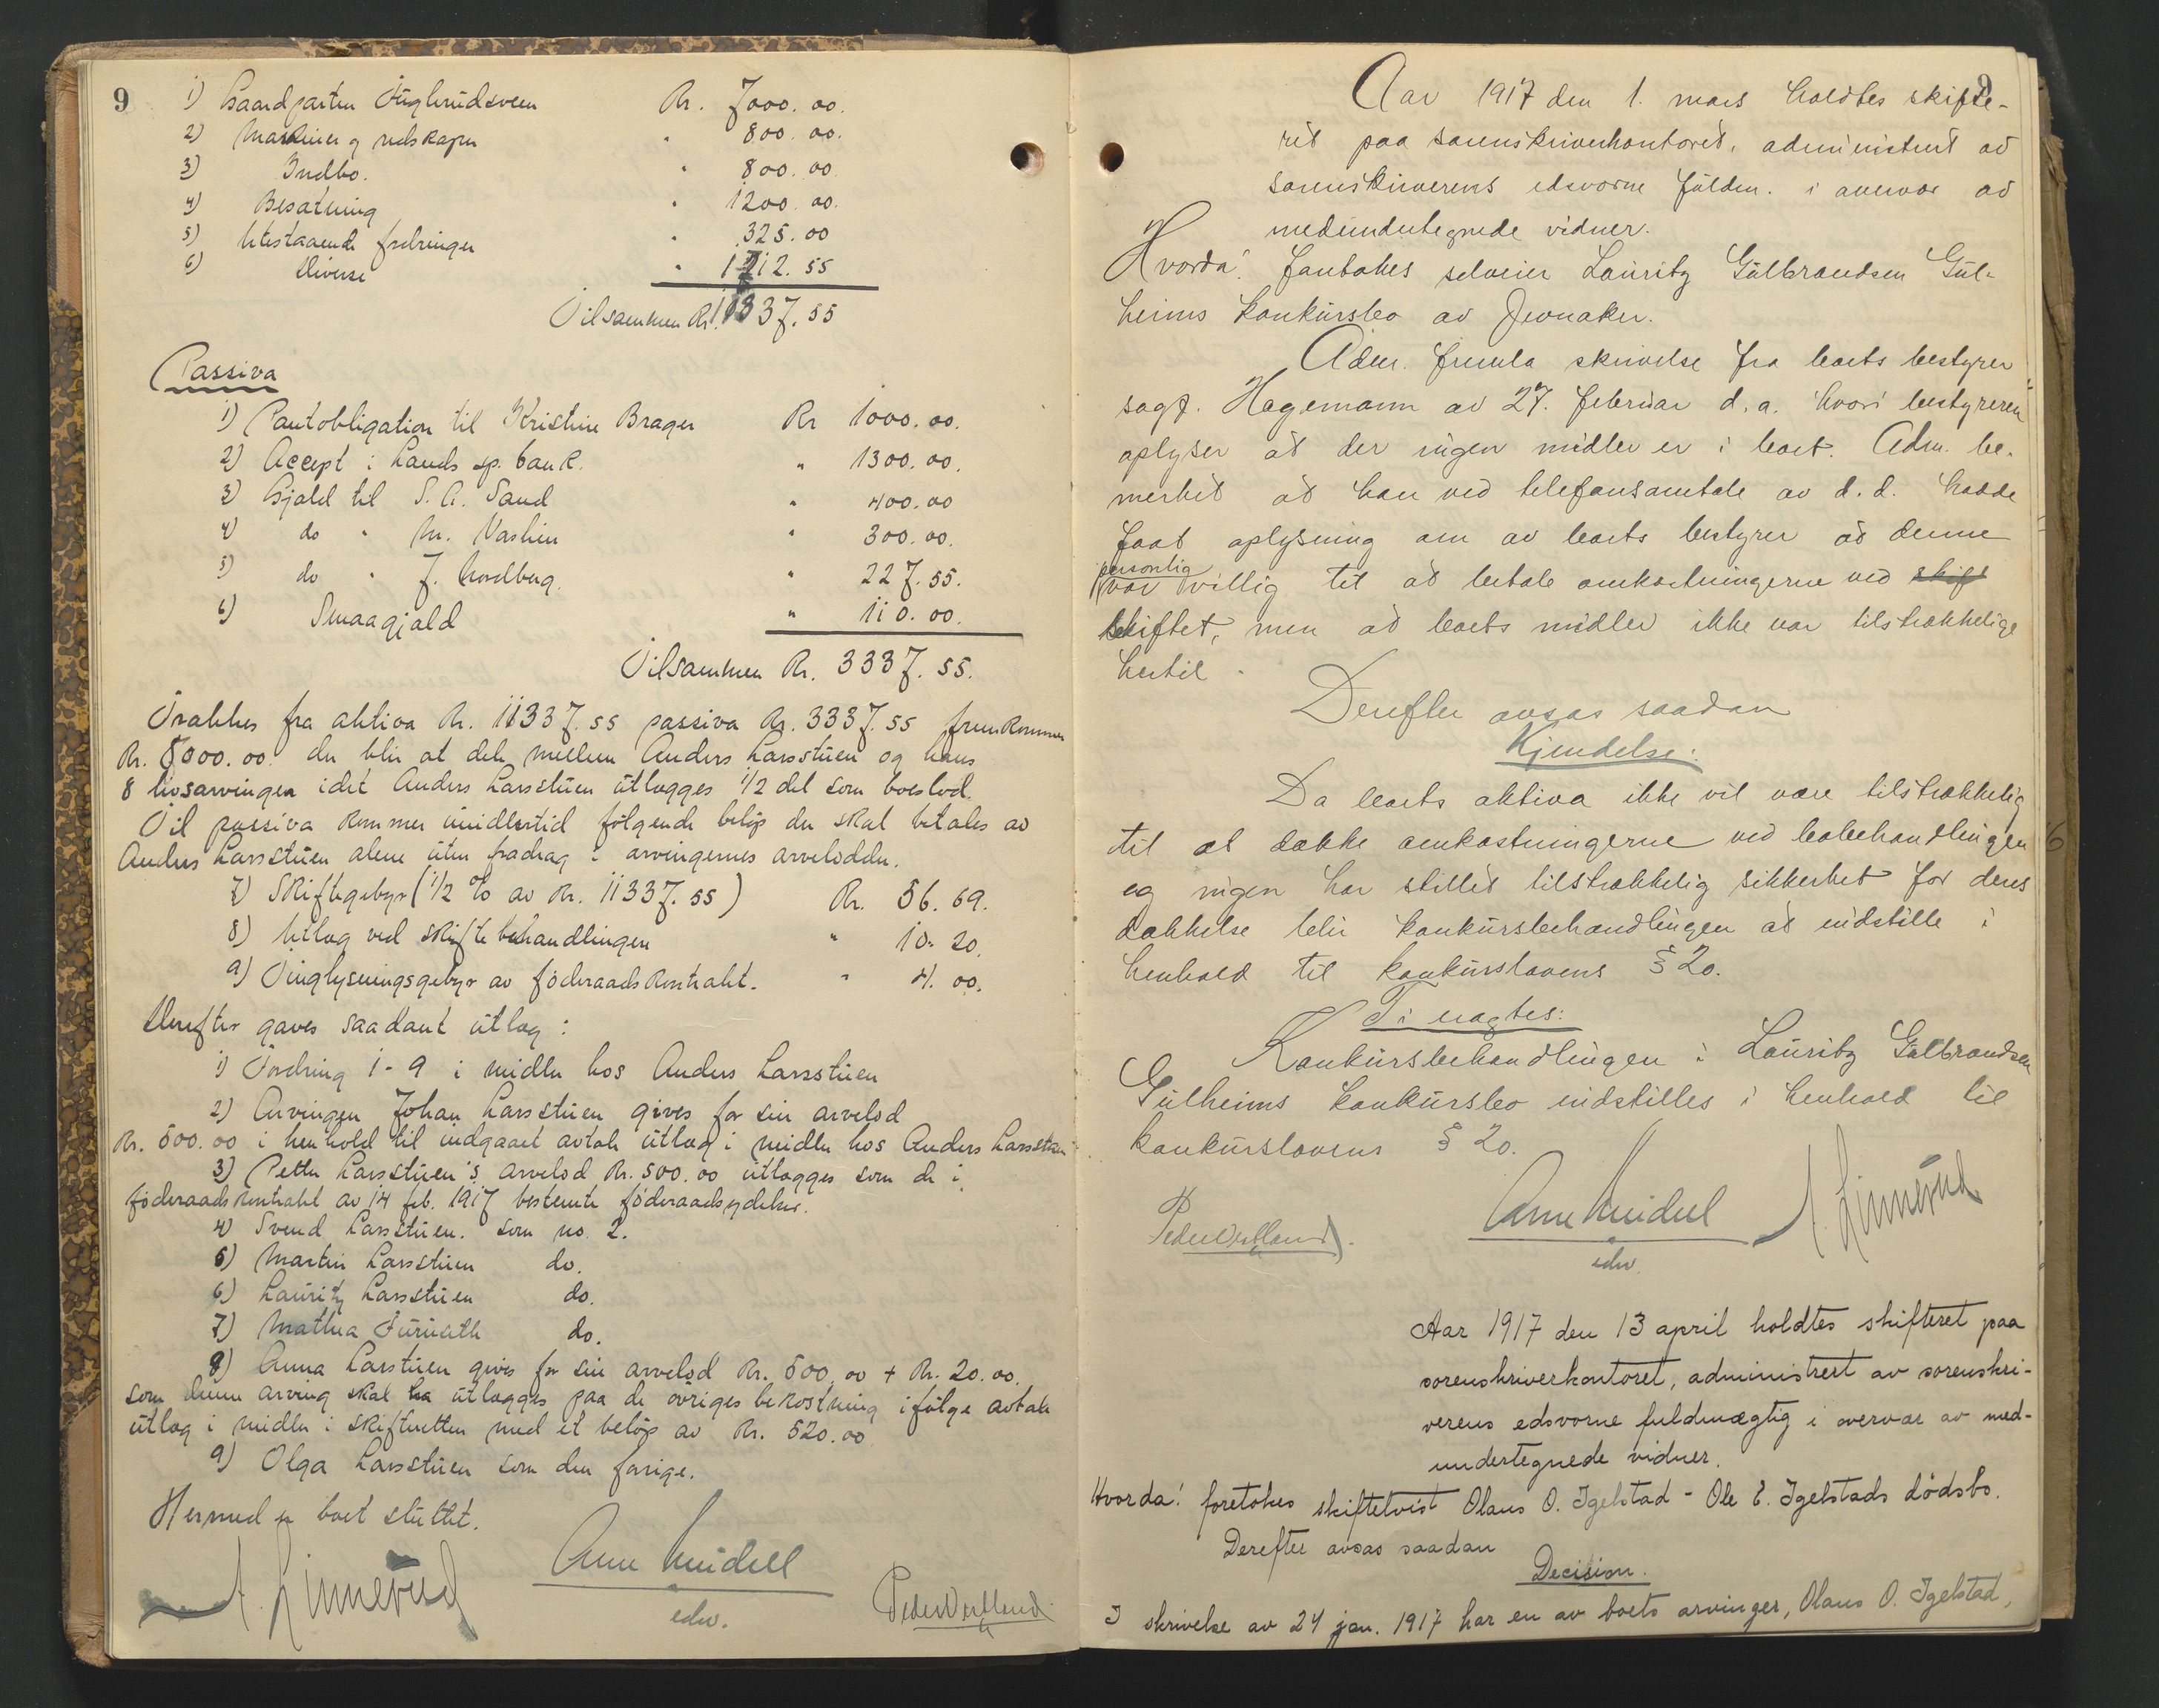 9
1) Gaardparten Fuglerudsveen Kr. 7000.00.
2) Maskiner og redskaper " 800.00.
3) Indbo. " 800.00
4) Besætning " 1200.00.
5) Utestaaende fordringer " 325.00
6) Diverse " 1212.55
Tilsammen Kr. 11337.55
Passiva
1) Pantobligation til Kristine Brager Kr 1000.00.
2) Accept i Lands sp. bank. " 1300.00.
3) Gjæld til S. A. Sand " 400.00
4) do " M. " 300.00.
5) do " J. Nordberg. " 227.55.
6) Smaagjæld " 110.00.
Tilsammen Kr. 3337.55.
Trækkes fra aktiva Kr. 11337.55 passiva Kr. 3337.55 fremkommer
Kr. 8000.00. der blir at dele mellem Anders Larsstuen og hans
8 livsarvinger idet Anders Larsstuen utlægges 1/2 del som boeslod.
Til passiva kommer imidlertid følgende beløp der skal betales av
Anders Larsstuen alene uten fradrag i arvingernes arvelodder.
7) Skiftegebyr (1/2 % av Kr. 11337.55) Kr. 56.69.
8) Utlæg ved skiftebehandlingen " 10.20.
9) Tinglysningsgebyr av føderaadskontrakt. " 4.00.
Derefter gaves saadant utlæg:
1) Fordring 1-9 i midler hos Anders Larsstuen
2) Arvingen Johan Larsstuen gives for sin arvelod
Kr. 500.00 i henhold til indgaaet avtale utlæg i midler hos Anders Larsstuen
3) Petter Larsstuen's arvelod Kr. 500.00 utlægges som de i
føderaadskontrakt av 14 feb. 1917 bestemte føderaadsydelser.
4) Svend Larsstuen. som no. 2.
5) Martin Larsstuen do.
6) Lauritz Larsstuen do.
7) Mathea do.
8) Anna Larsstuen gives for sin arvelod Kr. 500.00 + Kr. 20.00.
som denne arving skal ha utlægges paa de øvriges bekostning ifølge avtale
utlæg i midler i skifteretten med et beløp av Kr. 520.00
9) Olga Larsstuen som den forige.
Hermed er boet sluttet.
A. Linnerud Arne Meidell Peder Vestland
edsv.
9
Aar 1917 den 1. mars holdtes skifte-
ret paa sorenskriverkontoret, administrert av
sorenskriverens edsvorne fuldm. i overvær av
medundertegnede vidner.
Hvorda! foretokes selveier Lauritz Gulbrandsen Gul-
heims konkursbo av Jevnaker.
Adm. fremla skrivelse fra boets bestyrer
sagf. Hagemann av 27. februar d.a. hvori bestyreren
oplyser at der ingen midler er i boet. Adm. be-
merket at han ved telefonsamtale av d.d. hadde
faat oplysning om av boets bestyrer at denne
personlig
var villig til at betale omkostningerne ved skift
skiftet, men at boets midler ikke var tilstrækkelige
hertil.
Derefter avsas saadan
Kjendelse:
Da boets aktiva ikke vil være tilstrækkelig
til at dække omkostningerne ved bobehandlingen
og ingen har stillet tilstrækkelig sikkerhet for deres
dækkelse blir konkursbehandlingen at indstille i
henhold til konkurslovens § 20.
Ti eragtes:
Konkursbehandlingen i Lauritz Gulbrandsen
Gulheims konkursbo indstilles i henhold til
konkurslovens § 20.
Peder Vestland. Arne Meidell A. Linnerud
edsv.
Aar 1917 den 13 april holdtes skifteret paa
sorenskriverkontoret, administrert av sorenskri-
verens edsvorne fuldmægtig i overvær av med-
undertegnede vidner.
Hvorda! foretokes skiftetvist Olaus O. Igelstad - Ole E. Igelstads dödsbo.
Derefter avsas saadan
Decision.
I skrivelse av 24 jan. 1917 har en av boets arvinger, Olaus O. Igelstad,